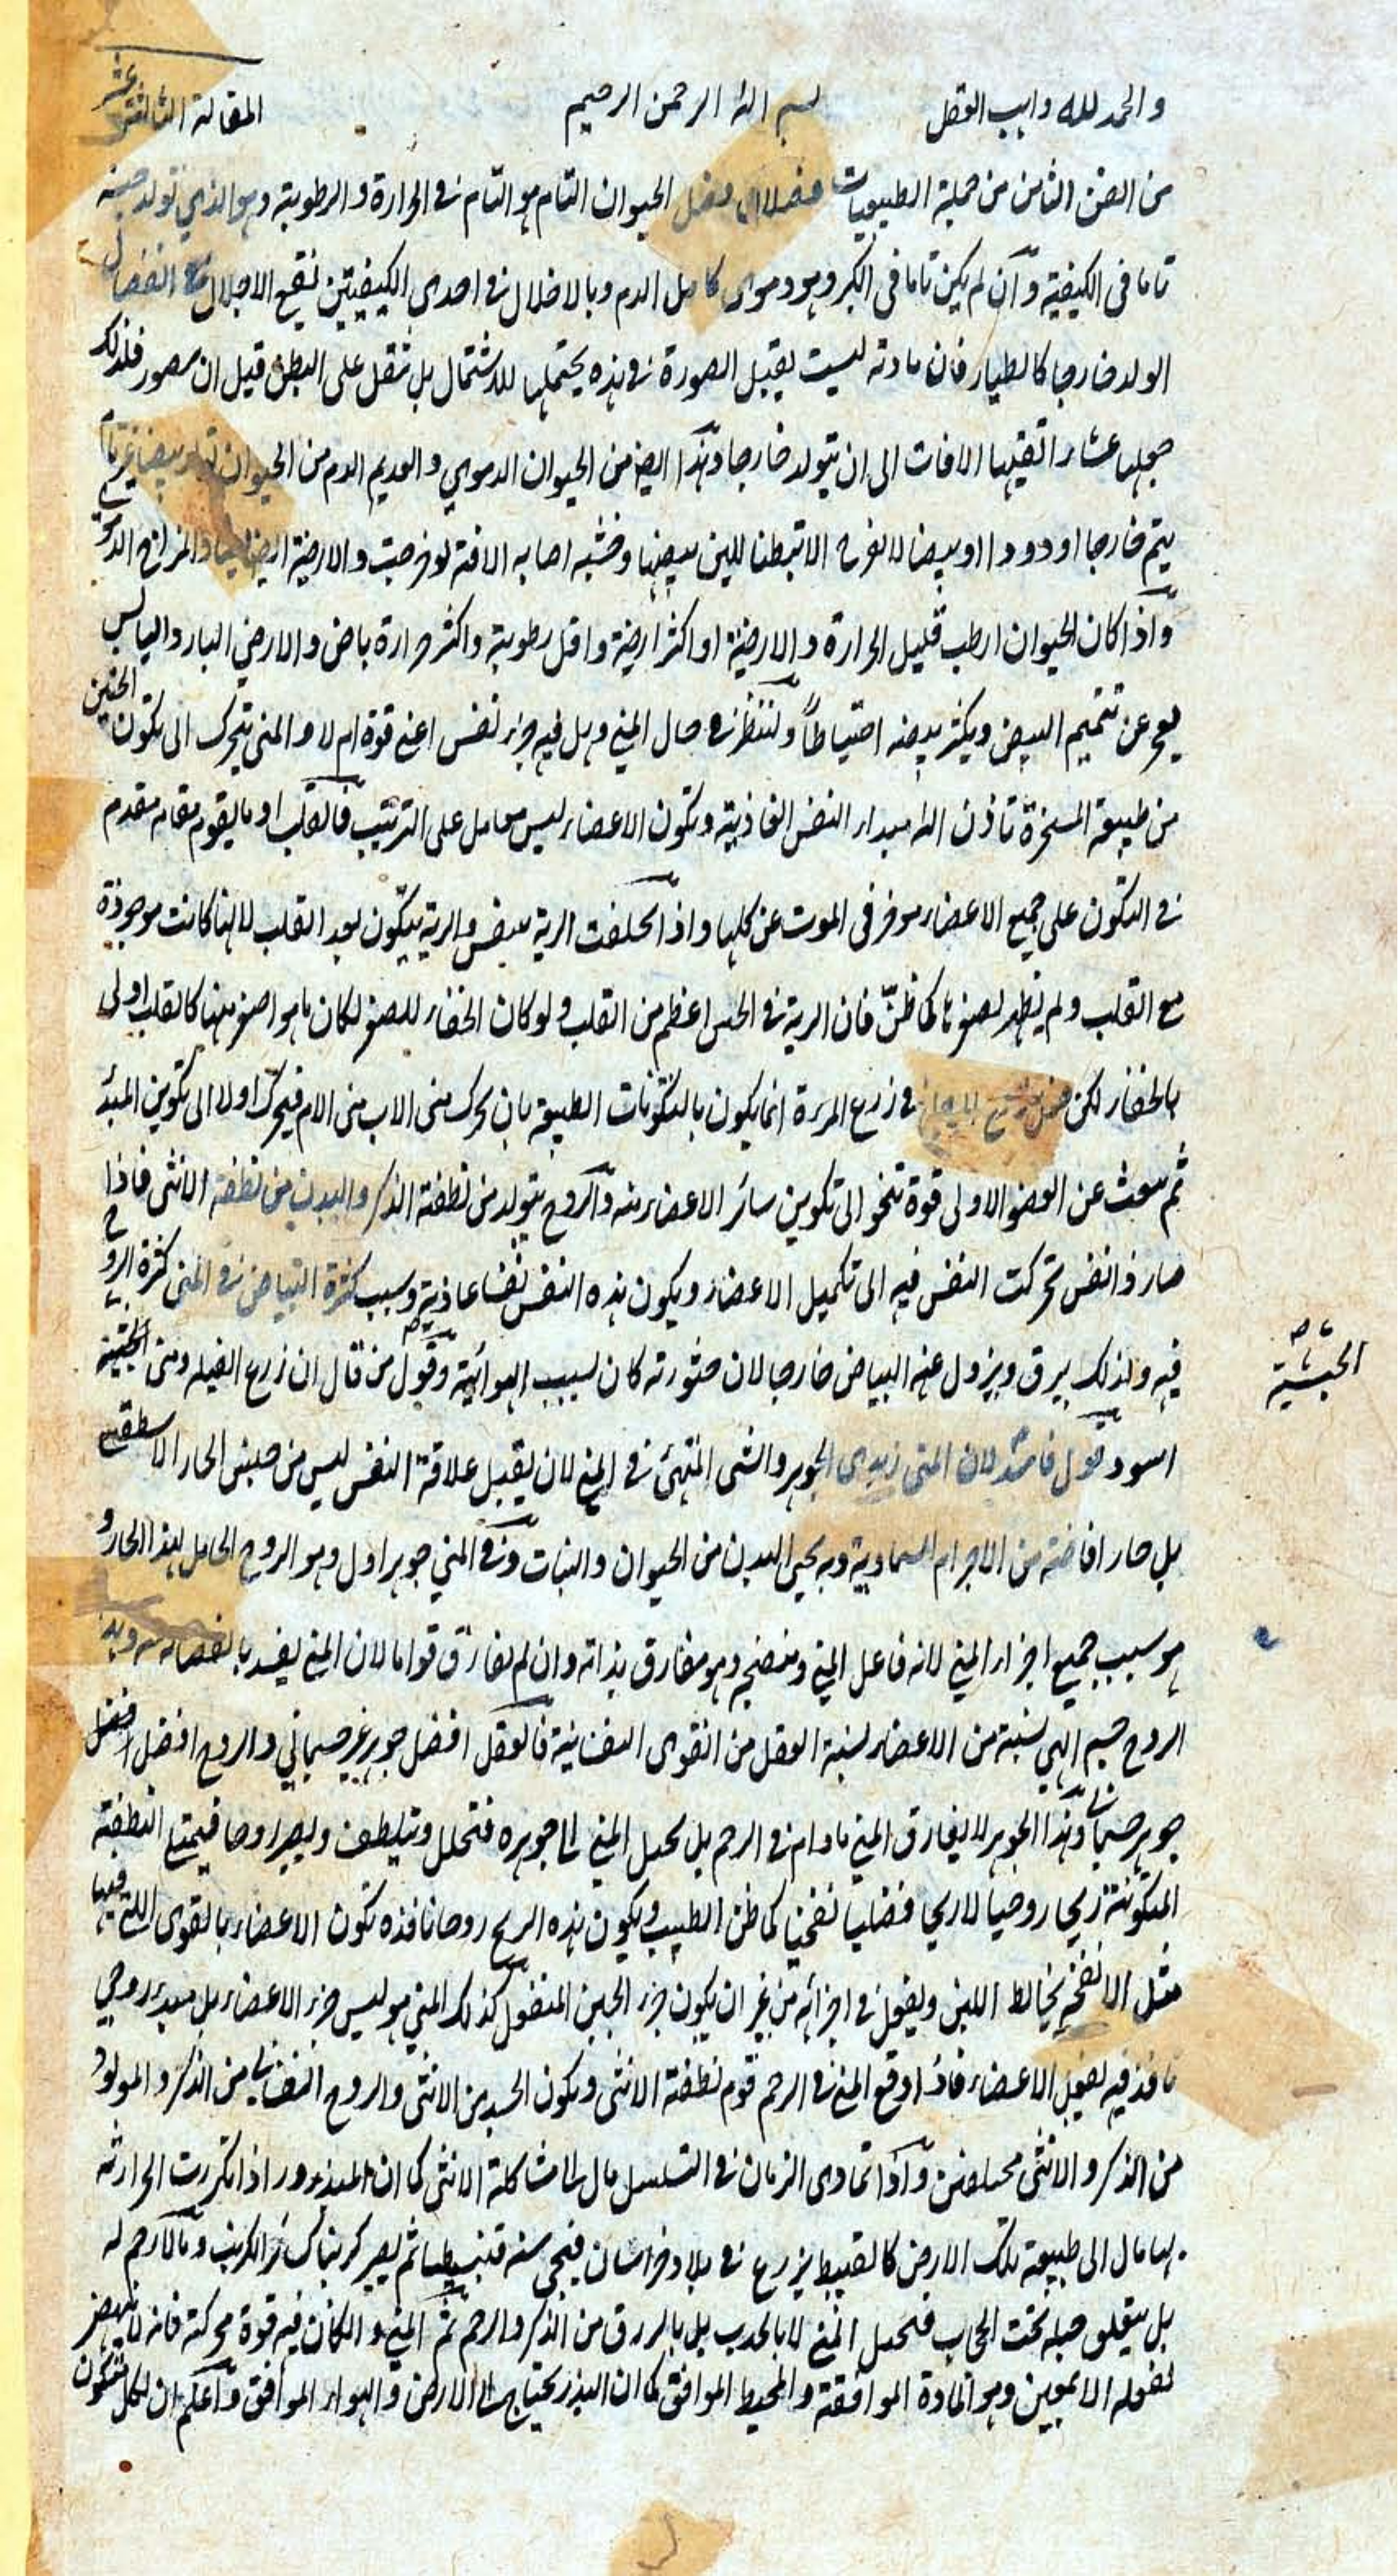 والحمد لله واهب العقل بسم الله الرحمن الرحيم المقالة الثالثة عشر
من الفن الثامن من جملة الطبيعيات فصلان فصل الحيوان التام هو التام فى الحرارة والرطوبة وهو الذي تولد جنينه
تاما فى الكيفية وان لم يكن تاما فى الكبر وهو دموى كامل الدم وبالاخلال فى احدى الكيفيتين نقع الاخلال مع انفصال
الولد خارجا كالطيار فان مادته ليست يقبل الصورة فى هذه يحتملها للاشتمال بل تنقل على البطن قبل ان يصور فلذلك
جعلها عشار اتقيها الافات الى ان يتولد خارجا وهذا ايضا من الحيوان الدموي والعديم الدم من الحيوان تولد بيضا غير تام
يتم خارجا او دودا او بيضا لا لفرخ الا تبطنا للين بيضها وخشية اصابه الافة لو خرجت والارضية ايضا والمزاج
واذا كان الحيوان ارطب قليل الحرارة والارضية او اكثر ارضية واقل رطوبة واكثر حرارة باض والارضي البارد اليابس
يعجز عن تتميم البيض ويكثر بيضه احتياطا ولننظر فى حال المني وهل فيه جزء نفس اعنى قوة ام لا والمنى يتحرك الى تكون الجنين
من طبيعة المسخرة تاذن الله مبداء النفس الغاذية وتكون الاعضاء ليس معا بل على الترتيب فالقلب او ما يقوم مقامه مقدم
فى التكون على جميع الاعضاء موخر فى الموت عن كلها واذا الرية والرية يتكون بعد القلب لا انها كانت موجودة
مع القلب ولم يظهر لصغرها كما ظن فان الرية فى الحس اعظم من القلب ولو كان الخفاء للصغر لكان ما هو اصغر منها كالقلب اولى
بالخفاء لكن فى زرع المرءة انما يكون بالتكونات الطبيعية بان يحرك منى الاب منى الام فيحرك اولا الى تكوين المبدء
ثم يبعث عن العضو الاولى قوة تنحو الى تكوين سائر الاعضاء منه والروح يتولد من نطفة الذكر والبدن من نطفة الانثى فاذا
صار ذا نفس تحركت النفس فيه الى تكميل الاعضاء ويكون هذه النفس نفسا غاذية وسبب كثرة البياض فى المنى كثرة الروح
فيه ولذلك يرق ويزول عنه البياض خارجا لان خثورته كان لسبب الهوائية وقول من قال ان زرع الفيلة ومنى الحبشية
الحبشية
اسود قول فاسد لان المنى زبدى الجوهر والشى المتهئ فى المنى لان يقبل علاقة النفس ليس من جنس الحار الاسطقسى
بل حار افاضته من الاجرام السماوية وبه يحيى البدن من الحيوان والنبات وفى المني جوهر اول وهو الروح الحامل لهذا الحار و
هو سبب جميع اجزاء المني لانه فاعل المني ومنضجه وهو مفارق بذاته وان لم يفارق قواما لان المني يفسد بانفصاله منه وهذا
الروح جسم الهي نسبته من الاعضاء نسبة العقل من القوى النفسانية فالعقل افضل جوهر غير جسماني والروح افضل
جوهر جسمانى وهذا الجوهر لا يفارق المني مادام فى الرحم بل يحيل المني الى جوهره فتحلل وتلطف وليصر روحا فيمتع النطفة
المتكونة ريحا روحيا لا ريحا فضليا نفخيا كما ظن الطبيب ويكون هذه الريح روحانا فذه تكون الاعضاء بالقوى اللتى فيها
مثل الانفخه يخالط اللبن ويفعل فى اجزائه من غير ان يكون جزء الجبن المنفعل كذلك المني هو ليس جزء الاعضاء بل مبدء روحى
نافذ فيه لفعل الاعضاء فاذا وقع المنى فى الرحم قوم نطفة الانثى ويكون الجسد من الانثى والروح النفسانى من الذكر والمولود
من الذكر والانثى مختلفين واذا تمادى الزمان فى التسلسل مال الى مشاكلة الانثى كما ان البذور اذا تكررت الحراثة
بها مال الى طبيعة تلك الارض كالقنبيط يزرع فى بلاد خراسان فيجى سنة قنبيطا ثم يصير كرنبا كسائر الكرنب وما لا رحم له
بل يتعلق حبله تحت الحجاب فتحبل المنى لا بالجذب بل بالزرق من الذكر والرحم ثم المنى والكائن فيه قوة محركة فانه لا ينهض
لفعله الا بمعين وهو المادة الموافقة والمحيط الموافق كما ان البذر يحتاج الى الارض والهواء الموافق واعلم ان لكل متكون